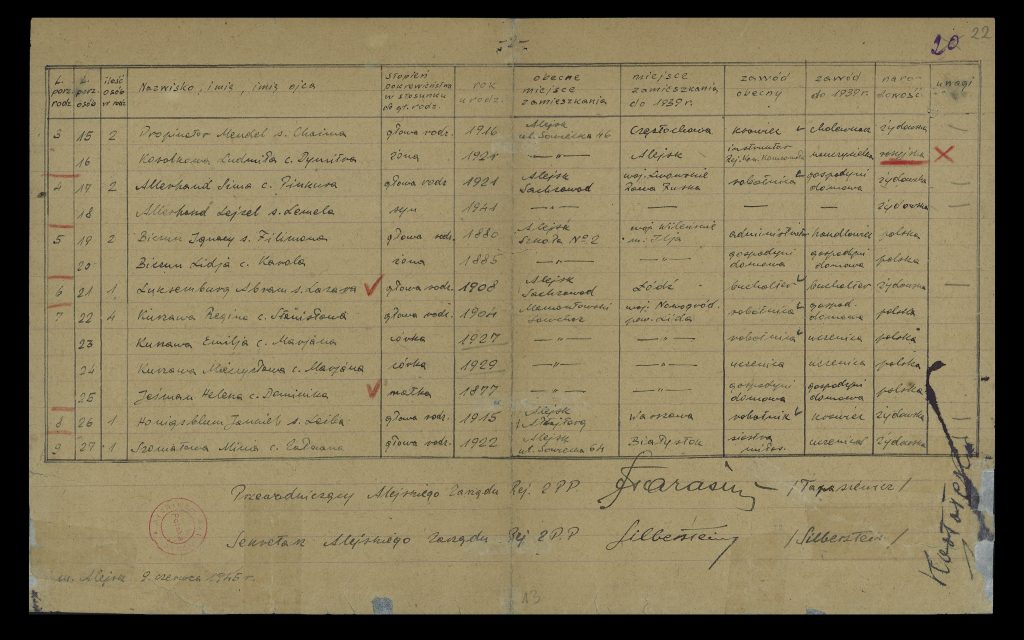 -2-
20 22
L. porz. rodz. | L. porz. osób | ilość osób w rodz. | Nazwisko, imię, imię ojca | stopień pokrewieństwa w stosunku do gł. rodz. | rok urodz. | obecne miejsce zamieszkania | miejsce zamieszkania do 1939 r. | zawód obecny | zawód do 1939 r. | narodowość | uwagi
3 15 2 Propinator Mendel s. Chaima głowa rodz. 1916 Alejsk ul. Sowiecka 46 Częstochowa krawiec cholewkarz żydowska
16 Korotkowa Ludmiła c. Dymitra żona 1921 —"— Alejsk instruktor nauczycielka rosyjska X
4 17 2 Allerhand Sima c. Pinkusa głowa rodz. 1921 Alejsk Sachzawod woj. Lwowskie Rawa Ruska robotnica gospodyni domowa żydowska
18 Allerhand Lejzel s. Lemela syn 1941 —"— —"— — — żydowska
5 19 2 Bierun Ignacy s. Filimona głowa rodz. 1880 Alejsk Szkoła No 2 woj. Wileńskie m. Ilja administrator handlowiec polska
20 Bierun Lidja c. Karola żona 1885 —"— —"— gospodyni domowa gospodyni domowa polska
6 21 1 Luksemburg Abram s. Lazara głowa rodz. 1908 Alejsk Sachzawod Łódź buchalter buchalter żydowska
7 22 4 Kurzawa Regina c. Stanisława głowa rodz. 1904 Mamontowski Sowchoz woj. Nowogród. pow. Lida robotnica gospod. domowa polska
23 Kurzawa Emilja c. Marjana córka 1927 —"— —"— robotnica uczenica polska
24 Kurzawa Mieczysława c. Marjana córka 1929 —"— —"— uczenica uczenica polska
25 Jeśman Helena c. Dominika matka 1877 —"— —"— gospodyni domowa gospodyni domowa polska
8 26 1 Honigsblum Jankiel s. Lejba głowa rodz. 1915 Alejsk Warszawa robotnik krawiec żydowska
9 27 1 Mina c. głowa rodz. 1922 Alejsk ul. Sowiecka 64 Białystok siostra miłos. uczenica żydowska
Przewodniczący Alejskiego Zarządu Rej. ZPP /Taraszewicz/
Sekretarz Alejskiego Zarządu Rej ZP.P Silberstein /Silberstein/
m. Alejsk 9. czerwca 1945 r.
13